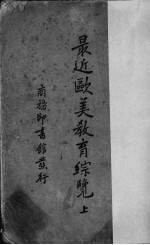 最近歐美教育綜覽 上
商務印書館發行